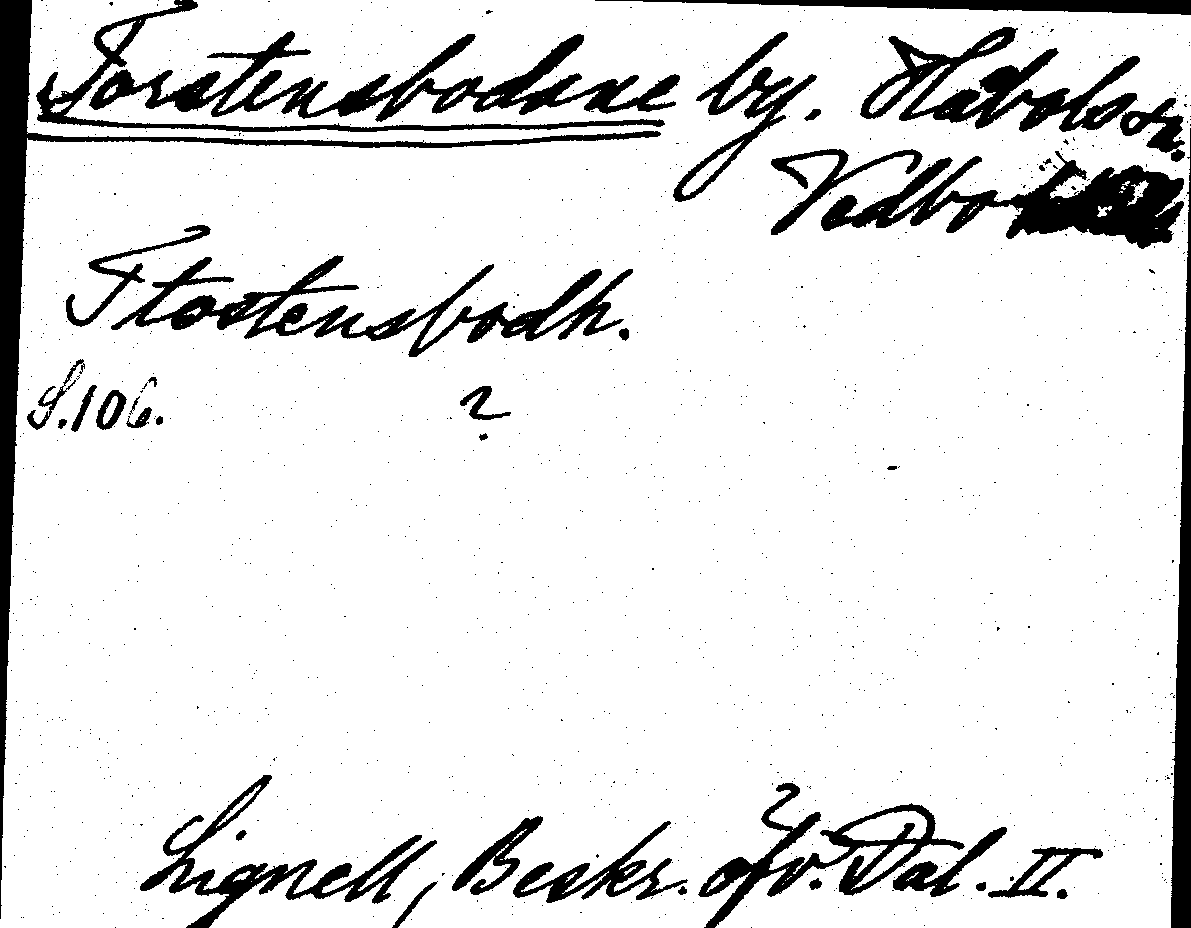 Torstensbodane by. Håbols sn.
Vedbo
Ttostensbodh.
S.106. ?
Lignell, Beskr. öfv. Dal. II.